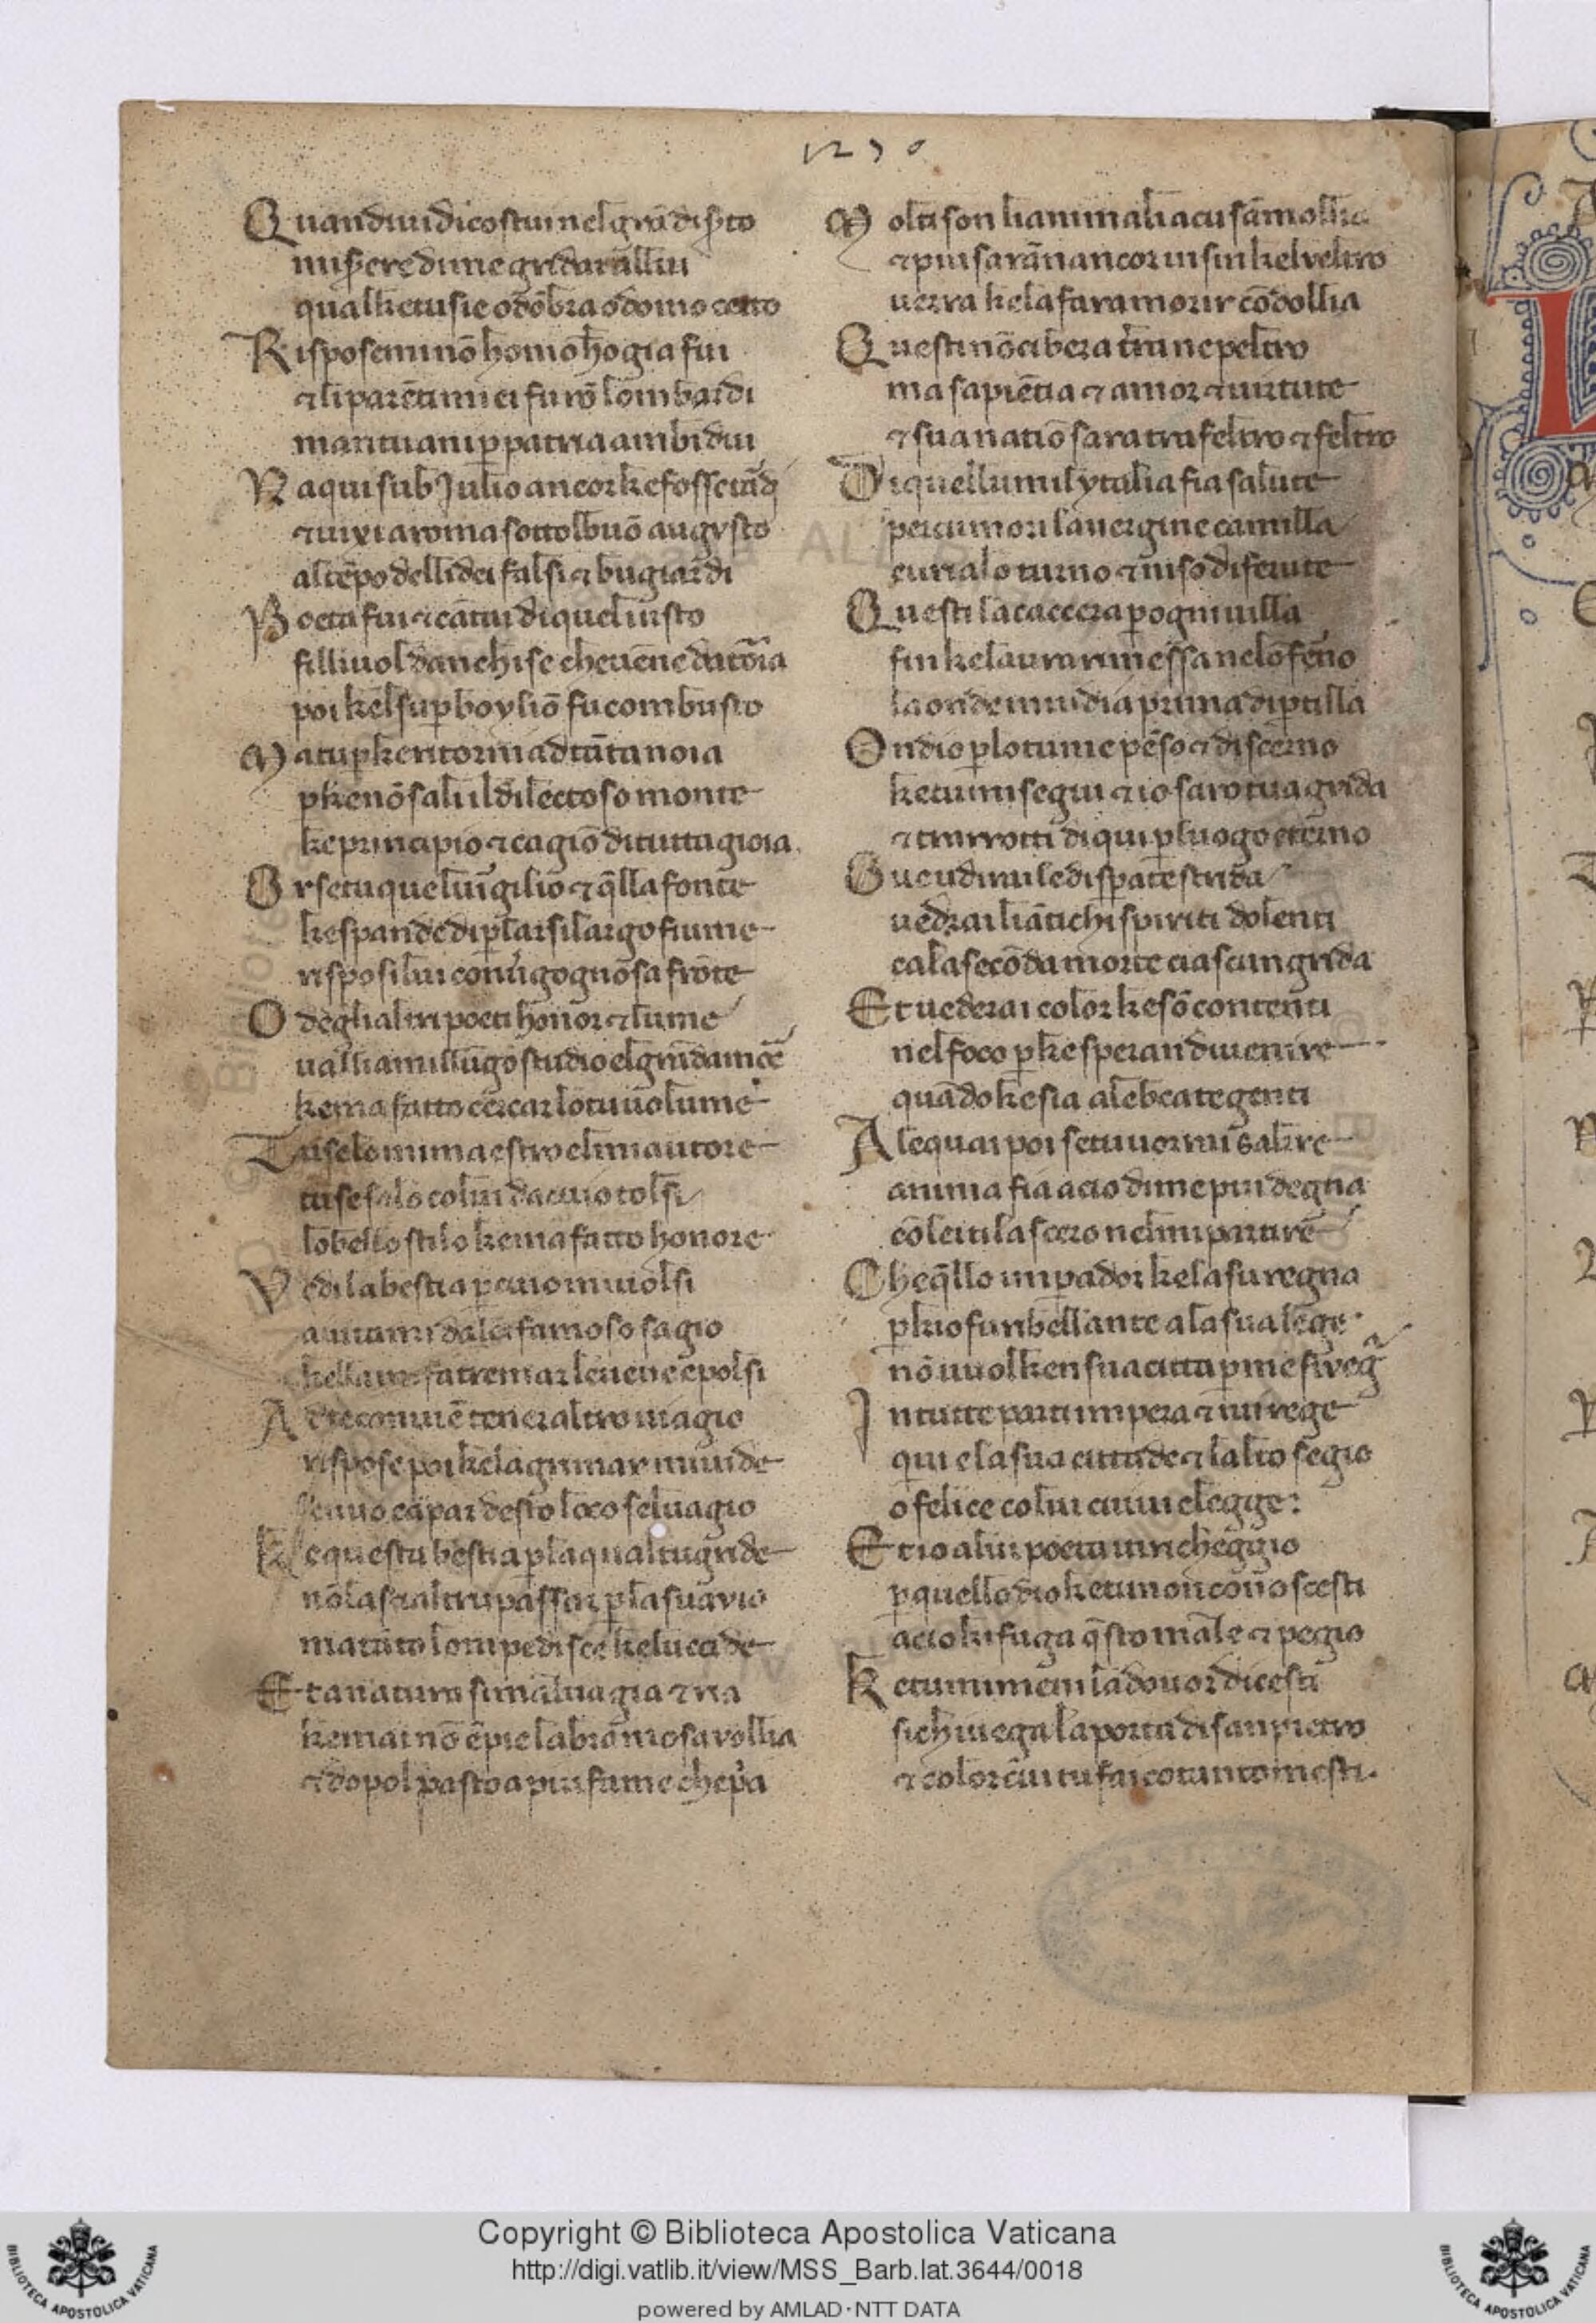 1270
Quandiuidi costui nel grã diẜto
miẜere di me gridai allui
qual ke tu sie od õbra od omo certo
Risposemi nõ homo homo gia fui
⁊ li parẽti miei furõ lombardi
mantuani ꝑ patria ambidui
Naqui sub Julio ancor ke fosse tãdi
⁊ uixi a roma sotto lbuõ augusto
al tẽpo delli dei falsi ⁊ bugiardi
Poeta fui ⁊ cãtai di quel iusto
filliuol danchise che uẽne da troia
poi kel suꝑbo yliõ fu combusto
Ma tu ꝑke ritorni ad tãta noia
ꝑke nõ sali il dilectoso monte
ke principio ⁊ cagiõ di tutta gioia
Or se tu quel uirgilio ⁊ q̃lla fonte
ke spande di ꝑlar si largo fiume
risposi lui cõ uergognosa frõte
O degli altri poeti honor ⁊ lume
uallia mil lũgo studio el grãd amore
ke ma fatto cercar lo tuo uolume
Tu se lo mi maestro el mi autore
tu se solo colui da cui o tolsi
lo bello stilo ke ma fatto honore
Vedi la bestia ꝑ cui o mi uolsi
aiutami da lei famoso sagio
kella mi fa tremar le uene e polsi
A te conuiẽ tener altro uiagio
rispose poi ke lagrimar mi uide
se uuo cãpar desto loco seluagio
Ke questa bestia ꝑ la qual tu gride
nõ lascia altrui passar ꝑ la sua uio
ma tãto lo mpedisce ke lucide
Et a natura si maluagia ⁊ ria
ke mai nõ ẽpie la bramosa vollia
⁊ dopo l pasto a piu fame che pria
Molti son li animali a cui sãmollia
⁊ piu saranan ancor in sin kel veltro
uerra ke la fara morir cõ dollia
Questi nõ cibera terra ne peltro
ma sapiẽtia ⁊ amor ⁊ uirtute
⁊ sua natiõ sara tra feltro ⁊ feltro
Di quellumil ytalia fia salute
per cui mori la uergine camilla
eurialo turno ⁊ niso di ferute
Questi la caccera ꝑ ogni uilla
fin ke laura rimessa ne lõferno
la onde inuidia prima diꝑtilla
Ondio ꝑ lo tu me pẽso ⁊ discerno
ke tu mi segui ⁊ io saro tua guida
⁊ trarrotti di qui ꝑ luogo eterno
Oue udirai le disperate strida
uedrai li ãtichi spiriti dolenti
ca la secõda morte ciascun grida
Et uederai color ke sõ contenti
nel foco ꝑke speran di uenire
quãdo ke sia a le beate genti
A le quai poi se tu uorrai salire
anima fia a cio di me piu degna
cõ lei ti lascero nel mi partire
Che q̃llo impador ke la su regna
ꝑkio fu ribellante a la sua lege
nõ uuol ken sua citta ꝑ me si vegna
In tutte parti impera ⁊ iui rege
qui e la sua cittade ⁊ lalto segio
o felice colui cui ui elegge:
Et io a lui poeta i ti richeggio
ꝑ quello dio ke tu non conoscesti
acio ki fuga q̃sto male ⁊ pegio
Ke tu mi meni la doue or dicesti
si chi uega la porta di san pietro
⁊ color cui tu fai cotanto mesti.
Copyright © Biblioteca Apostolica Vaticana
http://digi.vatlib.it/view/MSS_Barb.lat.3644/0018
powered by AMLAD·NTT DATA